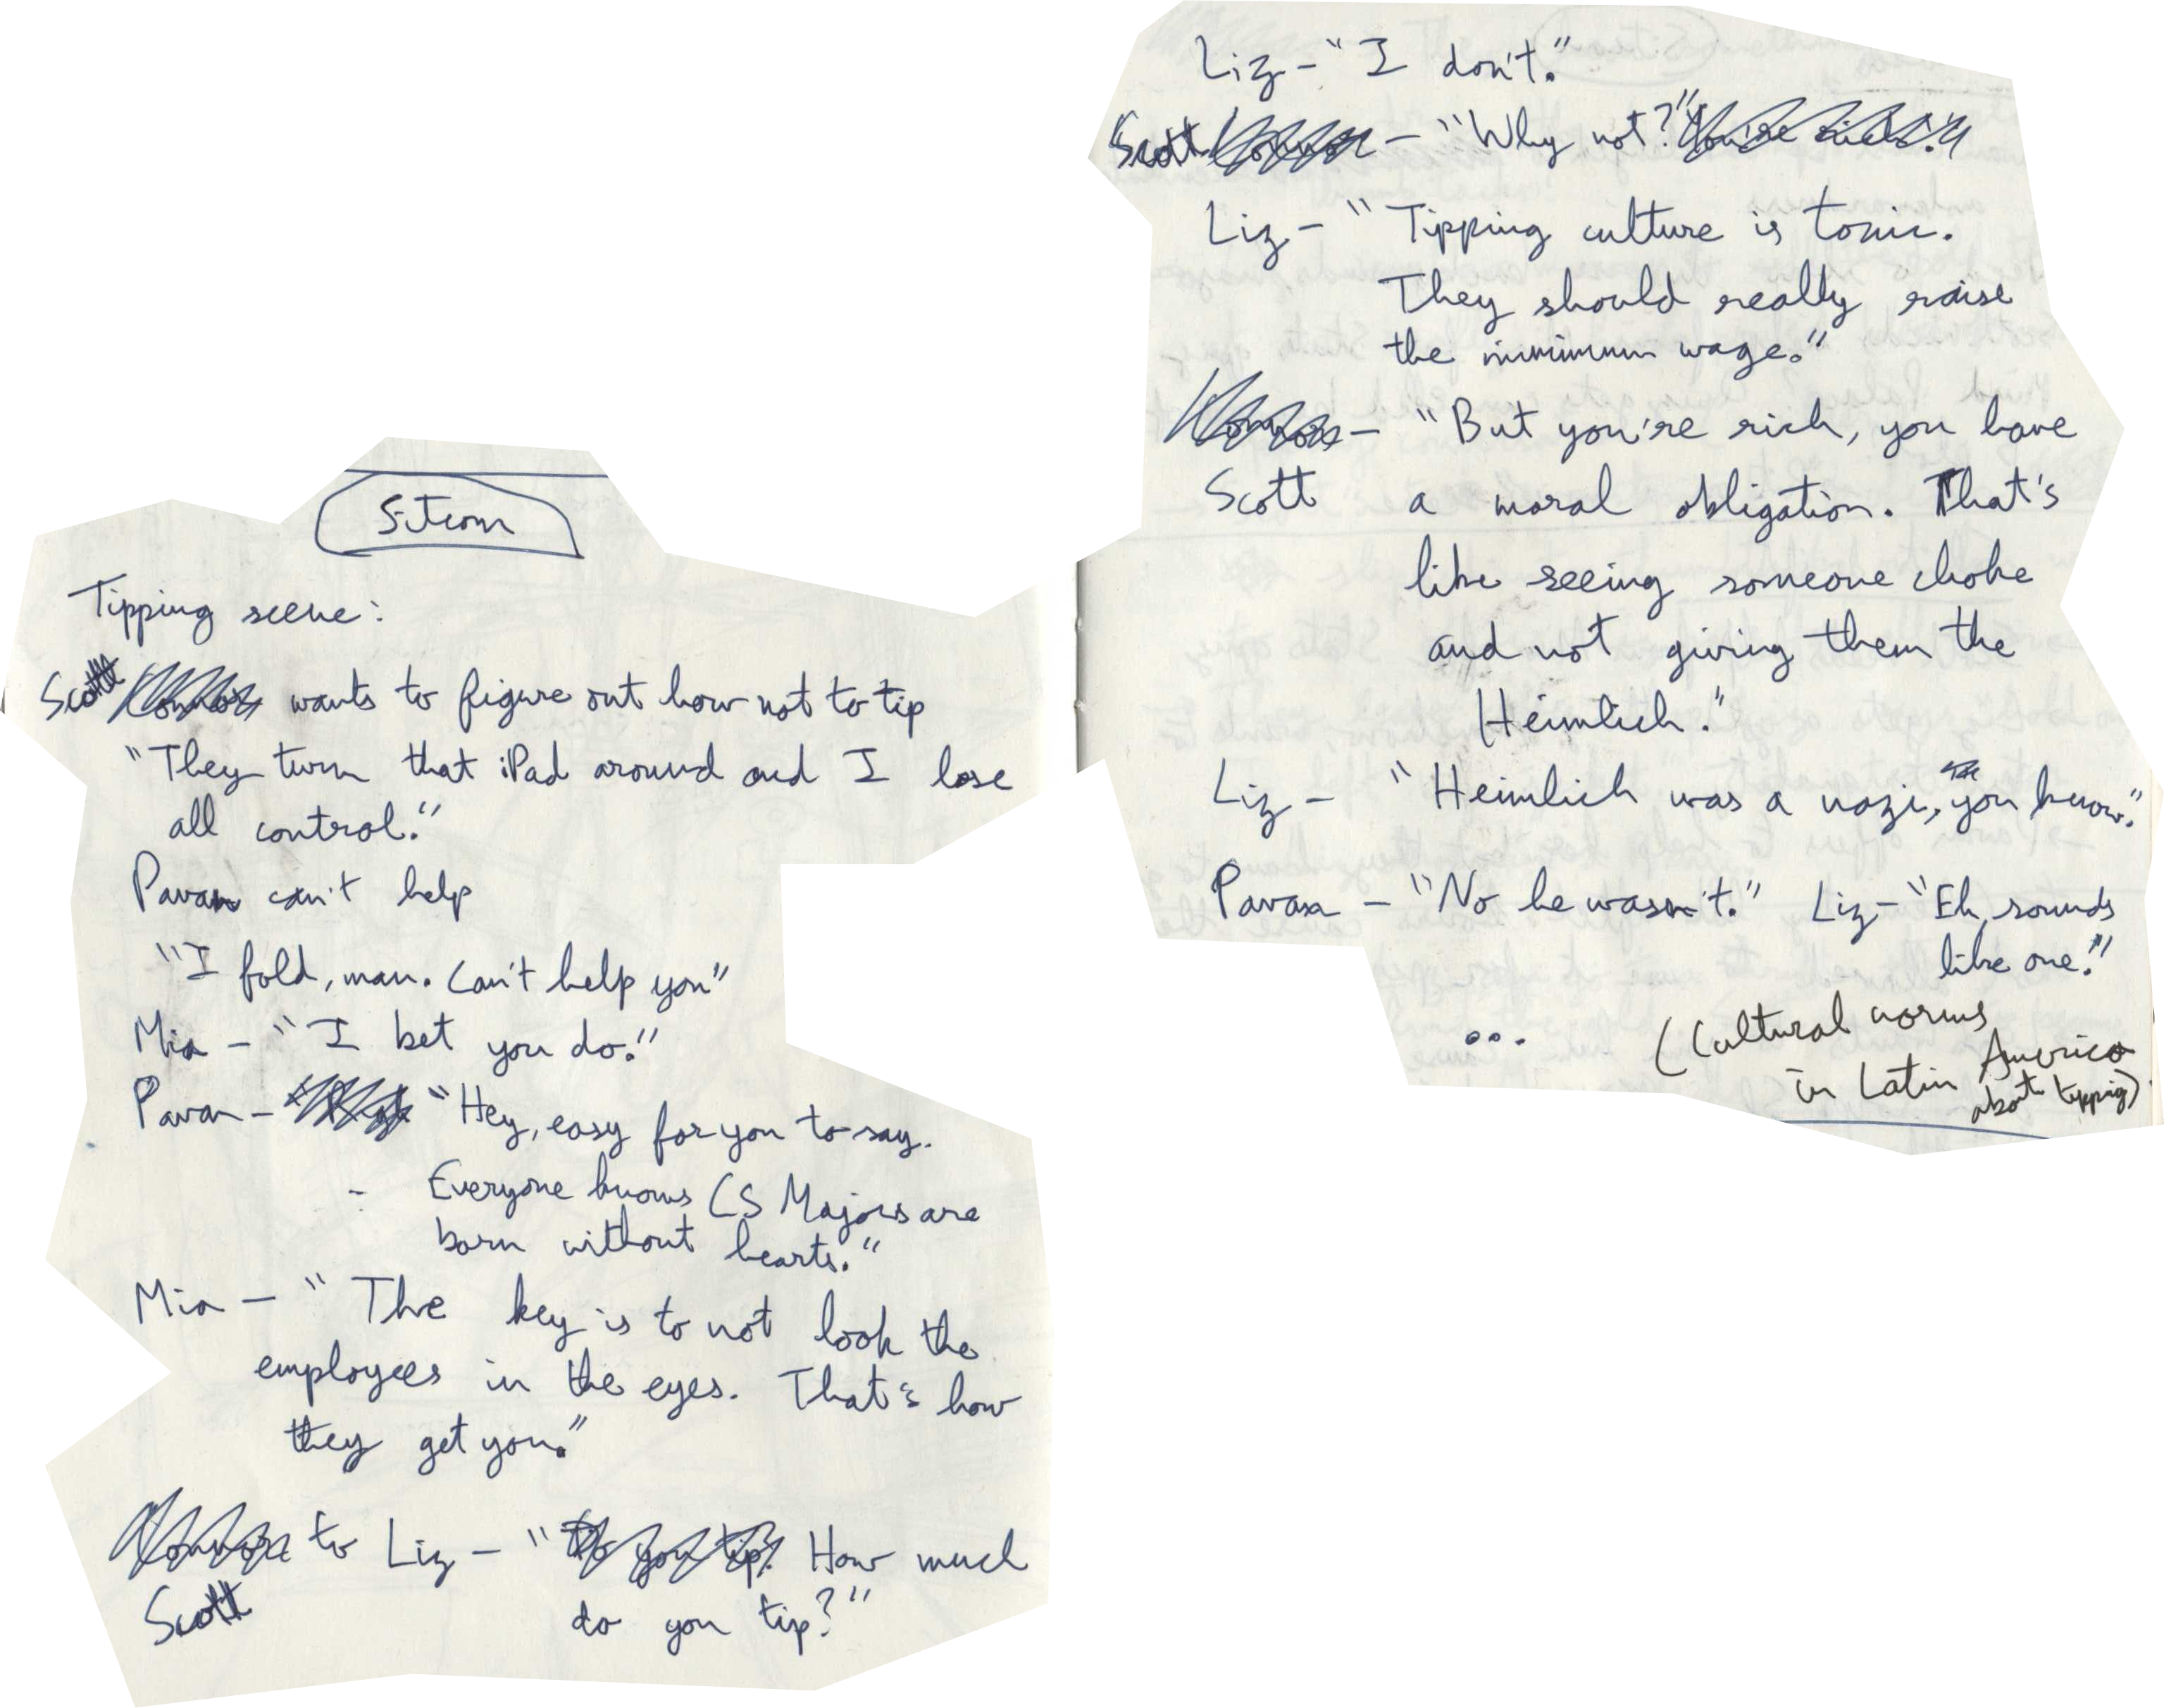 Sitcom
Tipping scene:
Scott wants to figure out how not to tip
"They turn that iPad around and I lose
all control."
Pavan can't help
"I fold, man. Can't help you"
Mia - "I bet you do."
Pavan - "Hey, easy for you to say.
- Everyone knows CS Majors are
born without hearts."
Mia - "The key is to not look the
employees in the eyes. That's how
they get you."
to Liz - "Do you tip? How much
Scott do you tip?"
Liz - "I don't."
Scott - "Why not?" You're rich."
Liz - "Tipping culture is toxic.
They should really raise
the minimum wage."
- "But you're rich, you have
Scott a moral obligation. That's
like seeing someone choke
and not giving them the
Heimlich."
Liz - "Heimlich was a nazi, you know."
Pavan - "No he wasn't." Liz - "Eh, sounds
like one."
...
(Cultural norms
in Latin America
about tipping)